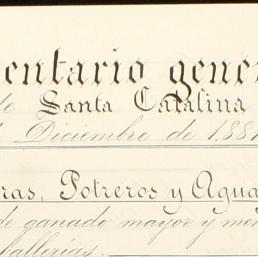 entario gene
de Santa Catalina
Diciembre de 188
ras, Potreros y Agua
de ganado mayor y men
ballerias.